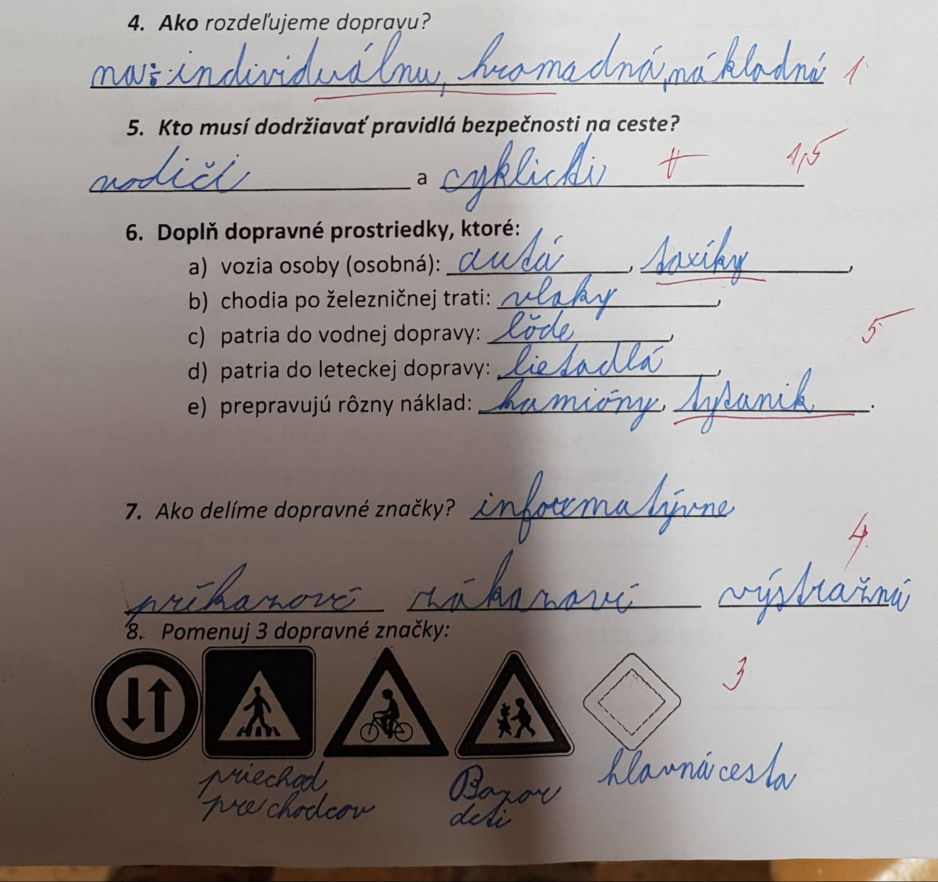 4. Ako rozdeľujeme dopravu?
na: individuálnu, hromadná, nákladná 1
5. Kto musí dodržiavať pravidlá bezpečnosti na ceste?
vodiči a cyklisti + 1,5
6. Doplň dopravné prostriedky, ktoré:
a) vozia osoby (osobná): autá, taxíky,
b) chodia po železničnej trati: vlaky,
c) patria do vodnej dopravy: lode,
d) patria do leteckej dopravy: lietadlá,
5
e) prepravujú rôzny náklad: kamióny, tytanik.
7. Ako delíme dopravné značky? informatývne
4
príkazové zákazové výstražná
8. Pomenuj 3 dopravné značky:
3
priechod
pre chodcov
Pozor
deti
hlavná cesta